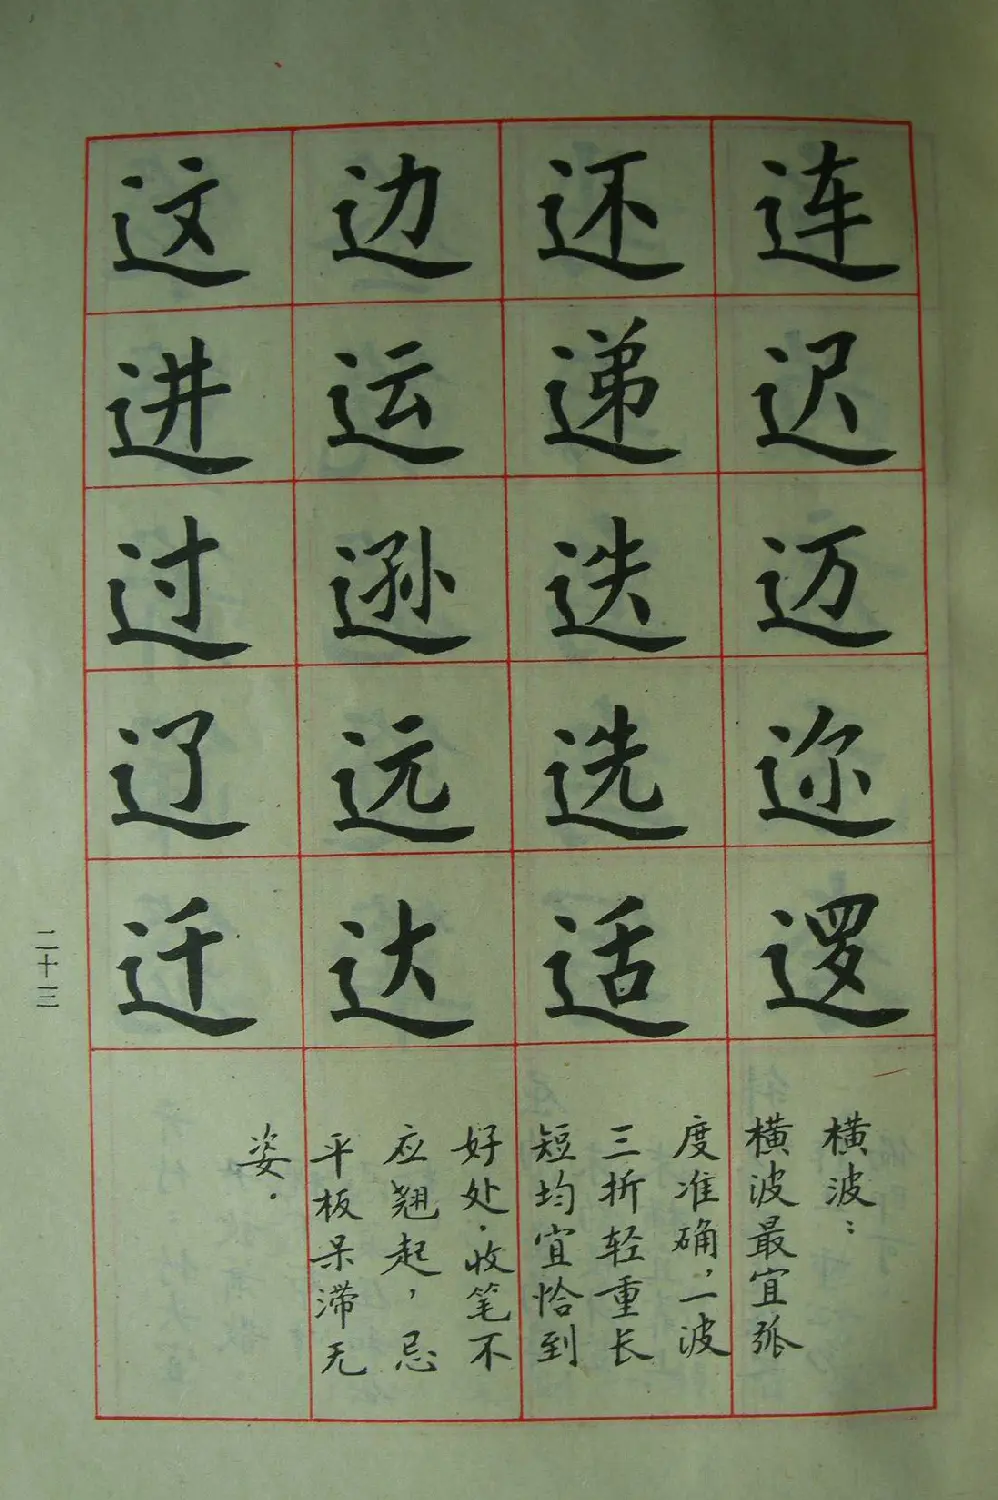 连迟迈迩逻
还递迭选适
边运逊远达
这进过辽迁
横波：
横波最宜弧
度准确，一波
三折轻重长
短均宜恰到
好处．收笔不
应翘起，忌
平板呆滞无
姿．
二十三